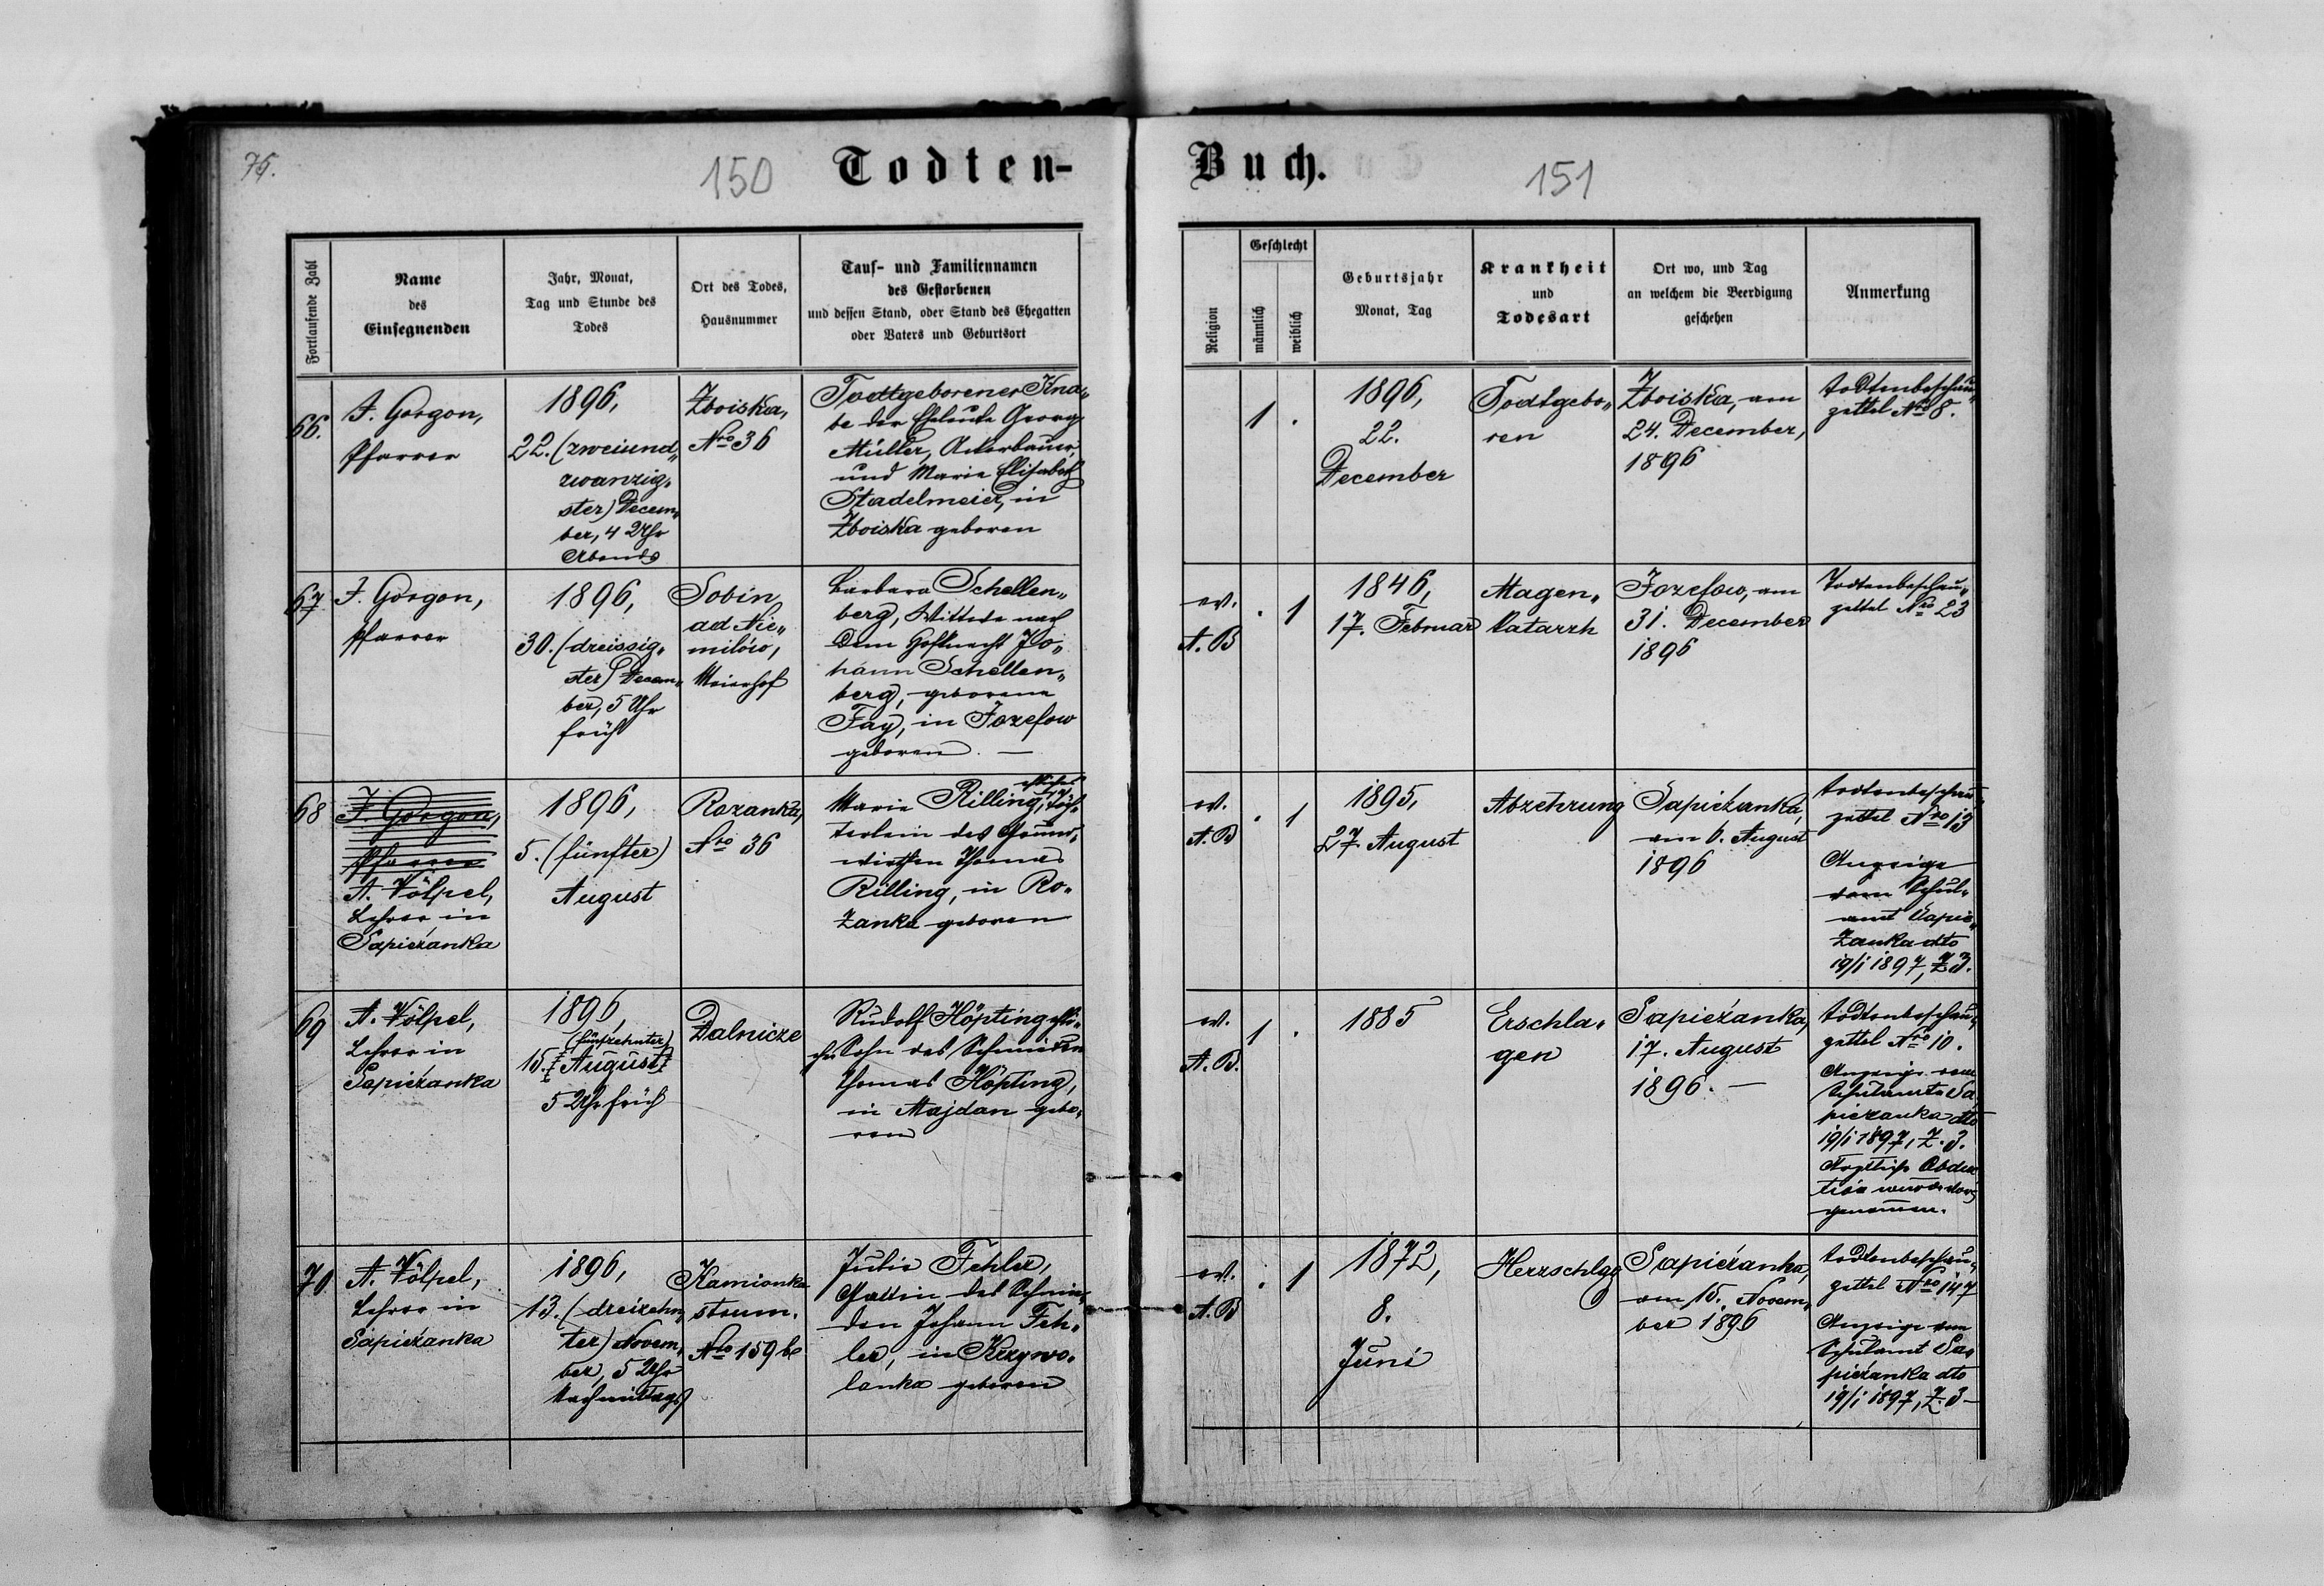 75.
150
Todten-
Fortlaufende Zahl
Name
des
Einsegnenden
Jahr, Monat,
Tag und Stunde des
Todes
Ort des Todes,
Hausnummer
Tauf- und Familiennamen
des Gestorbenen
und dessen Stand, oder Stand des Ehegatten
oder Vaters und Geburtsort
66.
J. Gorgon,
Pfarrer
1896,
22. (zweiund„
zwanzig„
ster) Decem„
ber, 4 Uhr
Abends
Zboiska,
Nro 36
Todtgeborener Kna„
be der Eheleute Georg
Müller, Ackerbauer,
und Marie Elisabeth
Stadelmeier, in
Zboiska geboren
67
J. Gorgon,
Pfarrer
1896,
30. (dreissig„
ster) Decem„
ber, 5 Uhr
früh
Sobin
ad Nie„
milów,
Meierhof
Barbara Schellen„
berg, Wittwe nach
dem Hofknecht Jo„
hann Schellen„
berg, geborene
Fay, in Jozefow
geboren. —
68
J. Gorgon,
Pfarrer
A. Völpel,
Lehrer in
Sapieżanka
1896,
5. (fünfter)
August
Rozanka,
Nro 36
eheliches
Marie Rilling, Töch„
terlein des Grund„
wirthen Thomas
Rilling, in Ro„
zanka geboren
69
A. Völpel,
Lehrer in
Sapieżanka
1896,
(fünfzehnter)
15. August
5 Uhr früh
Dalnicze
Rudolf Höpting ehli„
cher Sohn des Schmieden
Thomas Höpting,
in Majdan gebo„
ren
70
A. Völpel,
Lehrer in
Sapieżanka
1896,
13. (dreizehn„
ter) Novem„
ber, 5 Uhr
Nachmittags
Kamionka
strum.
Nro 159 b.
Julie Fehler,
Gattin des Schmie„
den Johann Feh„
ler, in Krzywo„
lanka geboren
Buch.
151
Religion
Geschlecht
männlich
weiblich
Geburtsjahr
Monat, Tag
Krankheit
und
Todesart
Ort wo, und Tag
an welchem die Beerdigung
geschehen
Anmerkung
1 .
1896,
22.
December
Todtgebo„
ren
Zboiska, am
24. December,
1896
Todtenbeschau„
zettel Nro 8.
ev.
A. B
. 1
1846,
17. Februar
Magen„
katarrh
Jozefow, am
31. December
1896
Todtenbeschau„
zettel Nro 23
ev.
A. B
. 1
1895,
27. August
Abzehrung
Sapieżanka,
am 6. August
1896
Todtenbeschau„
zettel Nro 13
Anzeige
vom Schul„
amt Sapie„
żanka dto
19/1 1897, Z 3.
ev.
A. B.
1 .
1885
Erschla„
gen
Sapieżanka,
17. August
1896. —
Todtenbeschau„
zettel Nro 10.
Anzeige vom
Schulamte Sa„
pieżanka dto
19/1 1897, Z. 3.
Obduc„
tion wurde vor„
genommen.
ev.
A. B
. 1
1872,
8.
Juni
Herzschlag
Sapieżanka,
am 15. Novem„
ber 1896
Todtenbeschau„
zettel Nro 147
Anzeige vom
Schulamt Sa„
pieżanka dto
19/1 1897, Z. 3 —